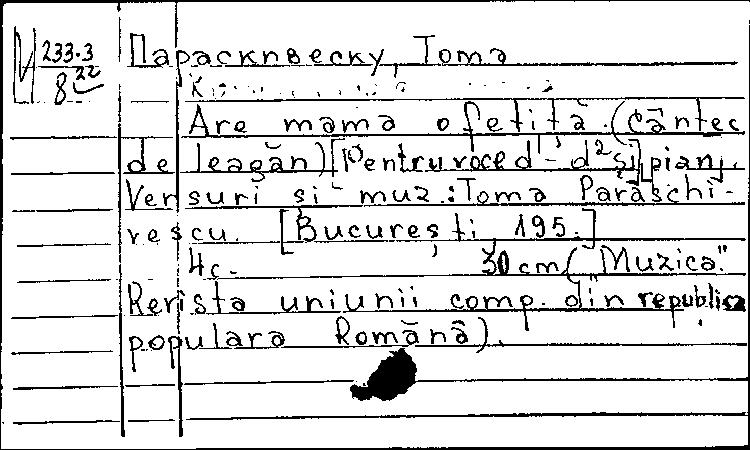 М 233-3
8 22
Параскивеску, Тома
Are mama o fetiță. (Cântec
de leagăn) [Pentru voce d¹-d² și pian].
Versuri și muz.: Toma Parăschi-
vescu. [București, 195.]
4c. 30 cm ("Muzica".
Revista uniunii comp. din republica
populara Română).